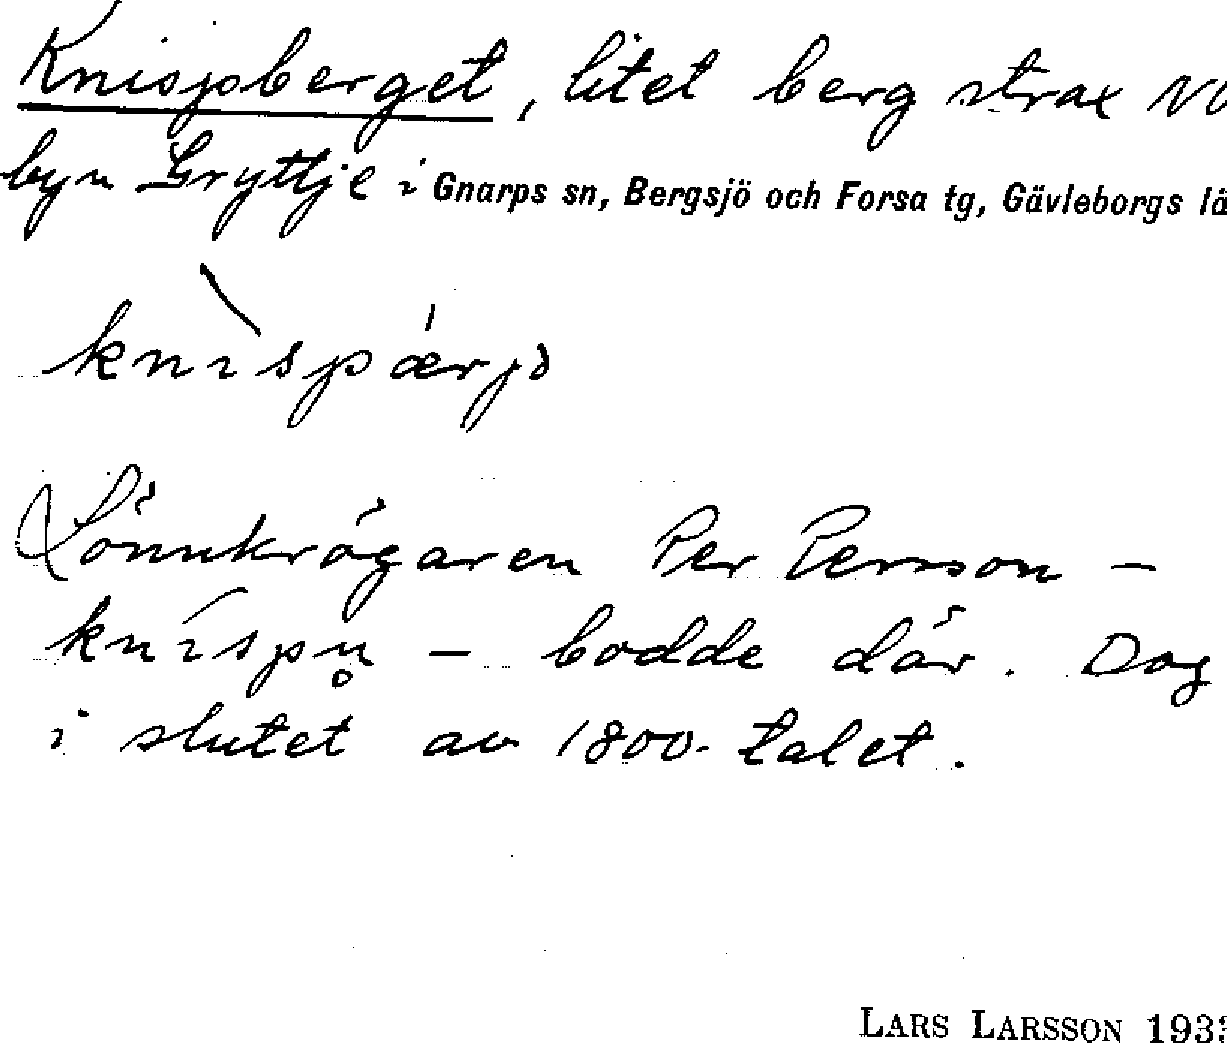 Knispberget, litet berg strax NV
byn Gryttje i Gnarps sn, Bergsjö och Forsa tg, Gävleborgs lä
knispærjə
Lönnkrögaren Per Persson –
knispn̥ – bodde där. Dog
i slutet av 1800-talet.
LARS LARSSON 1933